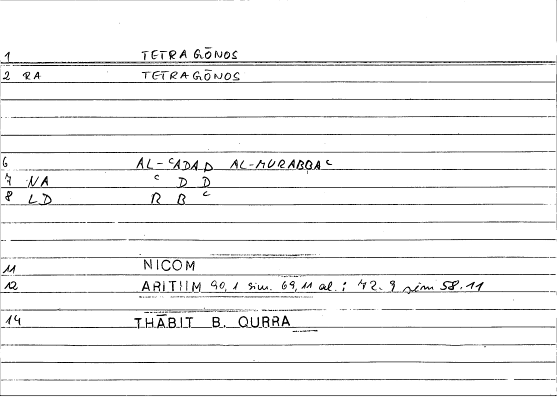 1 TETRAGŌNOS
2 RA TETRAGŌNOS
6 AL-ᶜADAD AL-MURABBAᶜ
7 NA ᶜ D D
8 LD R B ᶜ
11 NICOM
12 ARITHM 90,1 sim. 69,11 al.; 42.9 sim 58.11
14 THĀBIT B. QURRA